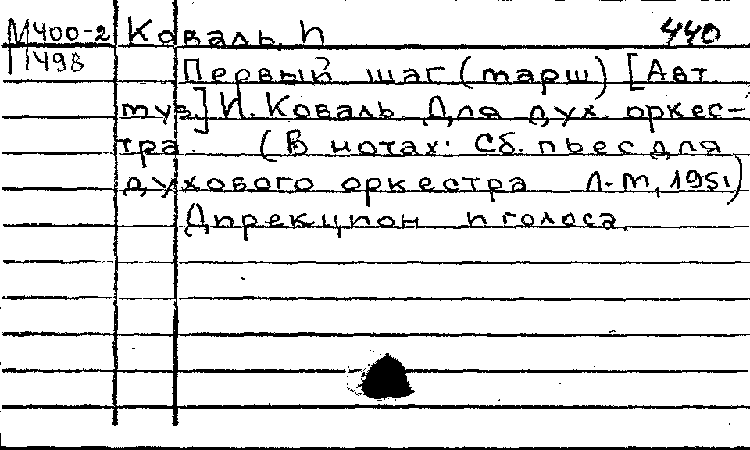 М400-2 Коваль, И 440
П498 Первый шаг (марш) [Авт.
муз.] И. Коваль Для дух. оркес-
тра. (В нотах: Сб. пьес для
духового оркестра Л.-М, 1951)
Дирекцион и голоса.